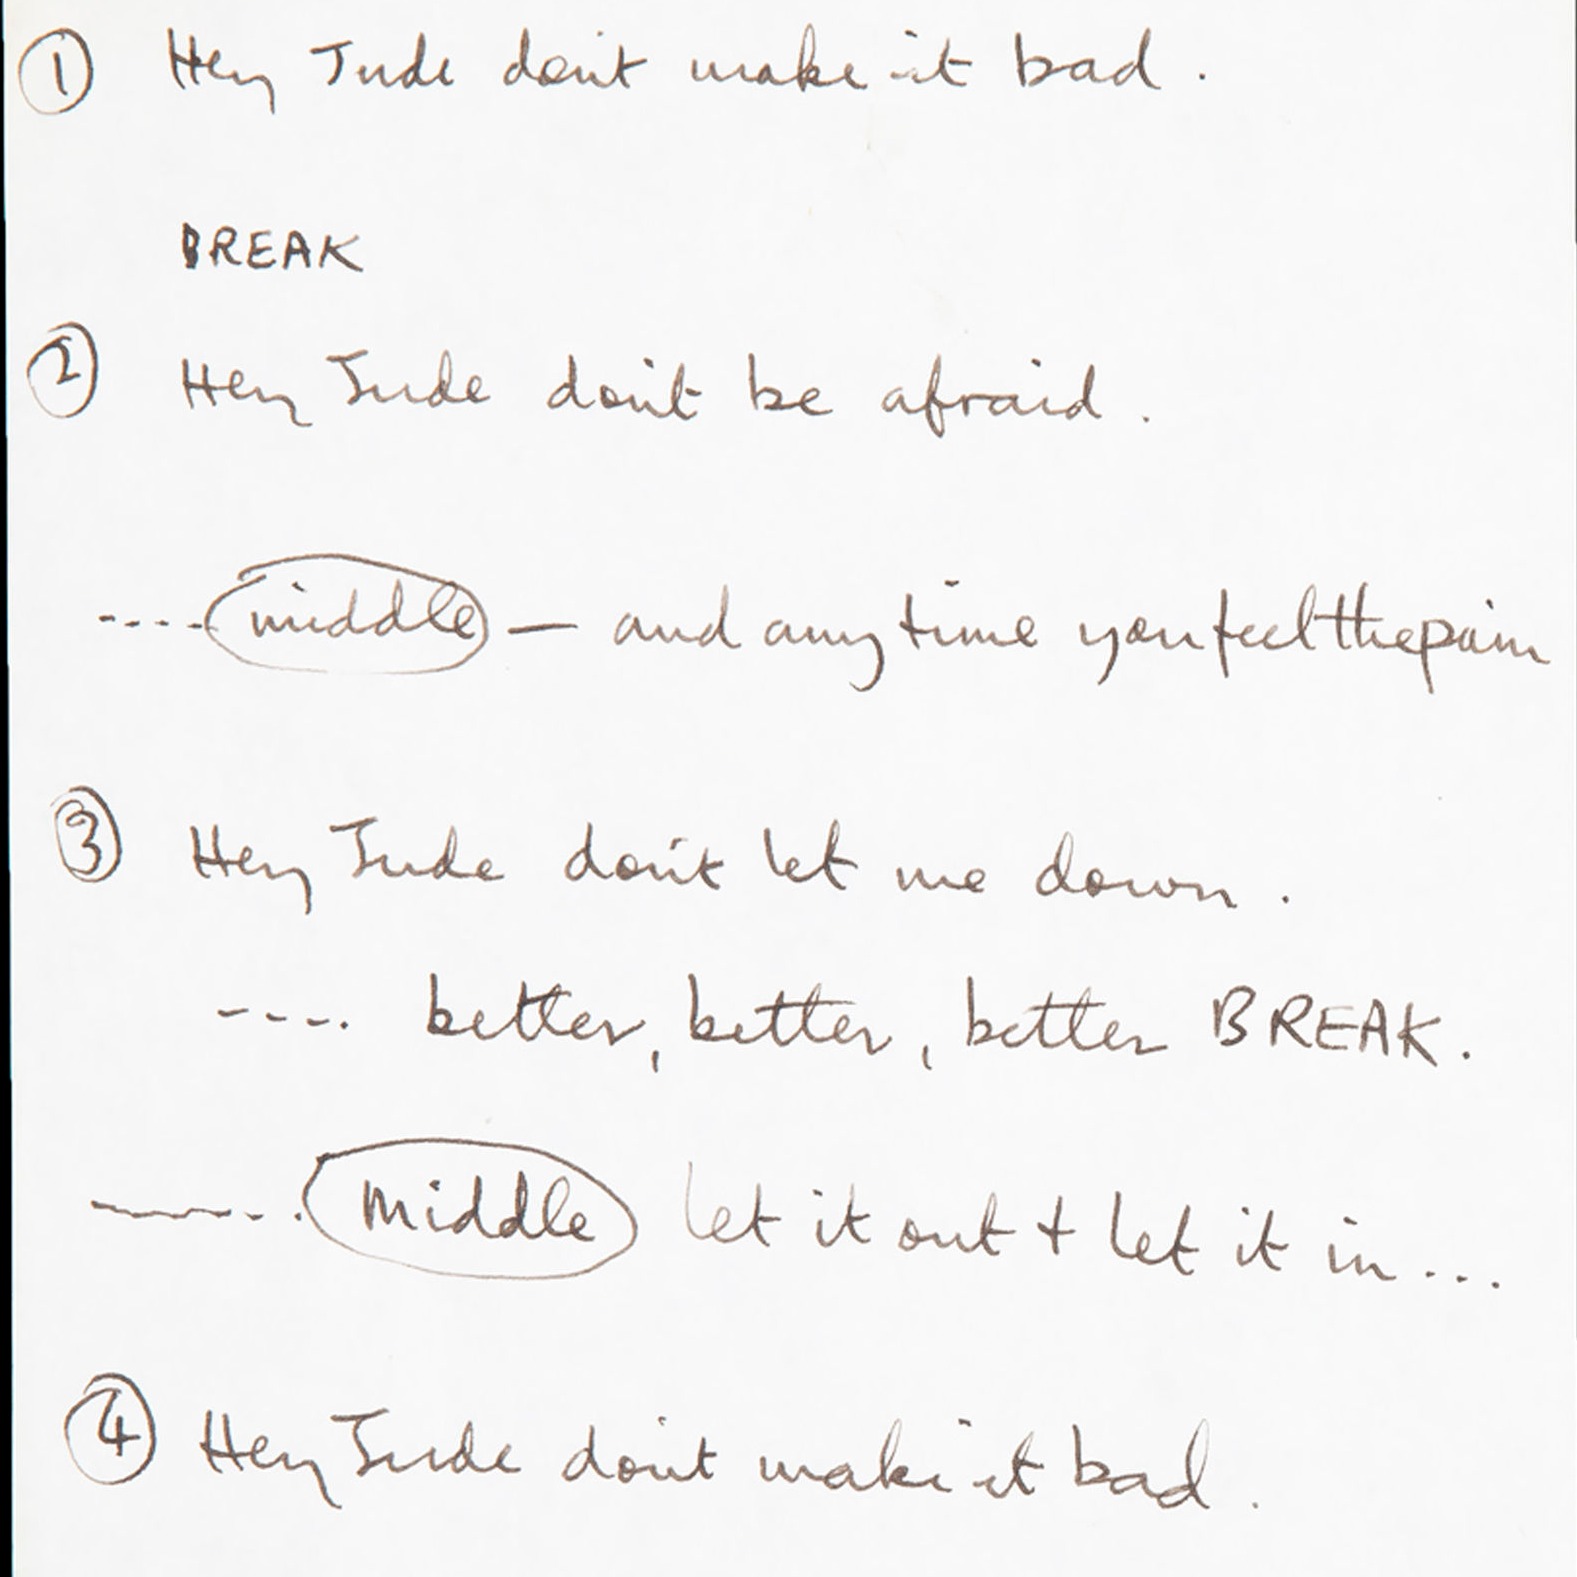 ① Hey Jude don't make it bad.
BREAK
② Hey Jude don't be afraid.
---- middle — and any time you feel the pain
③ Hey Jude don't let me down.
----. better, better, better BREAK.
----.. middle let it out + let it in...
④ Hey Jude don't make it bad.